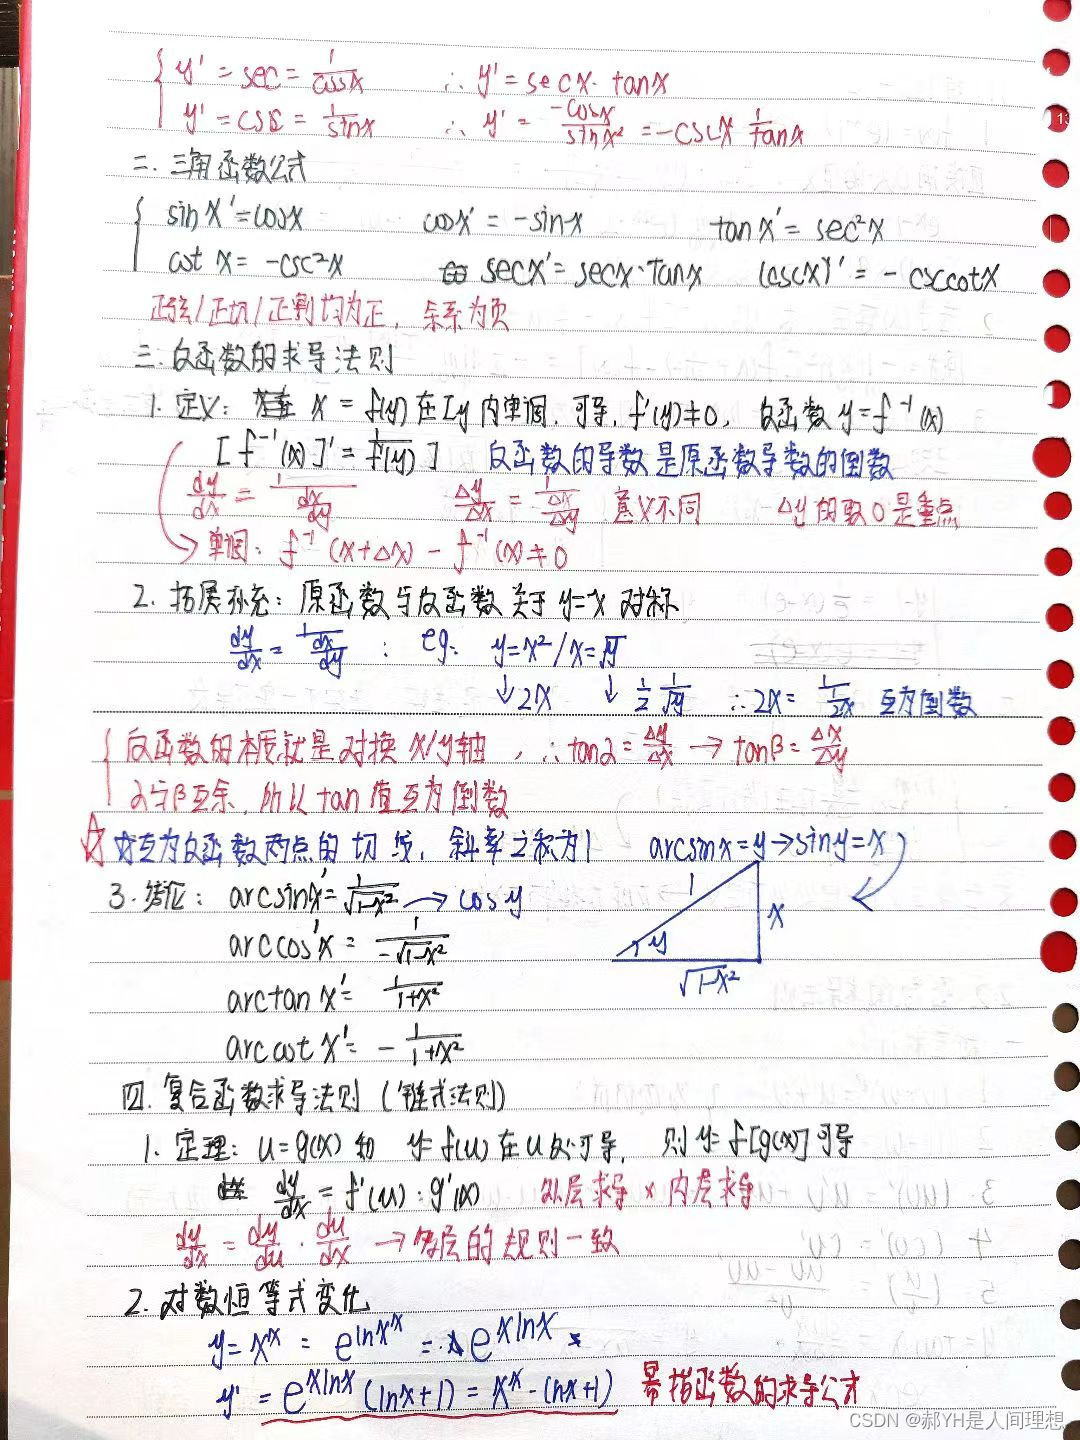 y' = sec = 1/cosx ∴ y' = secx · tanx
y' = csc = 1/sinx ∴ y' = -cosx/sinx² = -cscx 1/tanx
二. 三角函数公式
sinx' = cosx cosx' = -sinx tanx' = sec²x
cot x = -csc²x secx' = secx·tanx (cscx)' = -csccotx
正弦/正切/正割均为正, 余系为负
三. 反函数的求导法则
1. 定义: x = f(y) 在 Iy 内单调, 可导, f'(y)≠0, 反函数 y=f⁻¹(x)
[f⁻¹(x)]' = 1/f'(y) ] 反函数的导数是原函数导数的倒数
dy/dx = 1/(dx/dy) Δy/Δx = 1/(Δx/Δy) 意义不同 Δy的取0是重点
单调: f⁻¹(x+Δx) - f⁻¹(x) ≠ 0
2. 拓展补充: 原函数与反函数关于 y=x 对称
dy/dx = 1/(dx/dy) : eg: y=x² / x=√y
↓2x ↓ 1/2 1/√y ∴ 2x = 1/(1/2x) 互为倒数
反函数的本质就是对换 x/y轴, ∴ tanα = Δy/Δx → tanβ = Δx/Δy
α与β互余, 所以 tan 值互为倒数
☆ 互为反函数两点的切线, 斜率之积为1 arcsinx=y→siny=x
3. 结论: arcsinx' = 1/√1-x² → cosy
1 x y √1-x²
arccos'x = 1/-√1-x²
arctan x' = 1/1+x²
arccot x' = - 1/1+x²
四. 复合函数求导法则 (链式法则)
1. 定理: u=g(x) 和 y=f(u) 在 u 处可导, 则 y=f[g(x)] 可导
dy/dx = f'(u) · g'(x) 外层求导 × 内层求导
dy/dx = dy/du · du/dx → 多层的规则一致
2. 对数恒等式变化
y = x^x = e^lnx^x = e^xlnx
y' = e^xlnx (lnx+1) = x^x · (lnx+1) 幂指函数的求导公式
CSDN @郝YH是人间理想